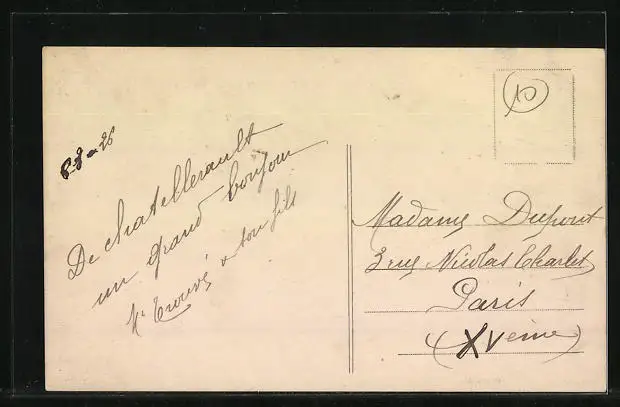 8-8-26
De chatellerault
un grand bonjour
& ton fils
10
Madame Dupont
3 rue Nicolas Charlet
Paris
(XVeme)